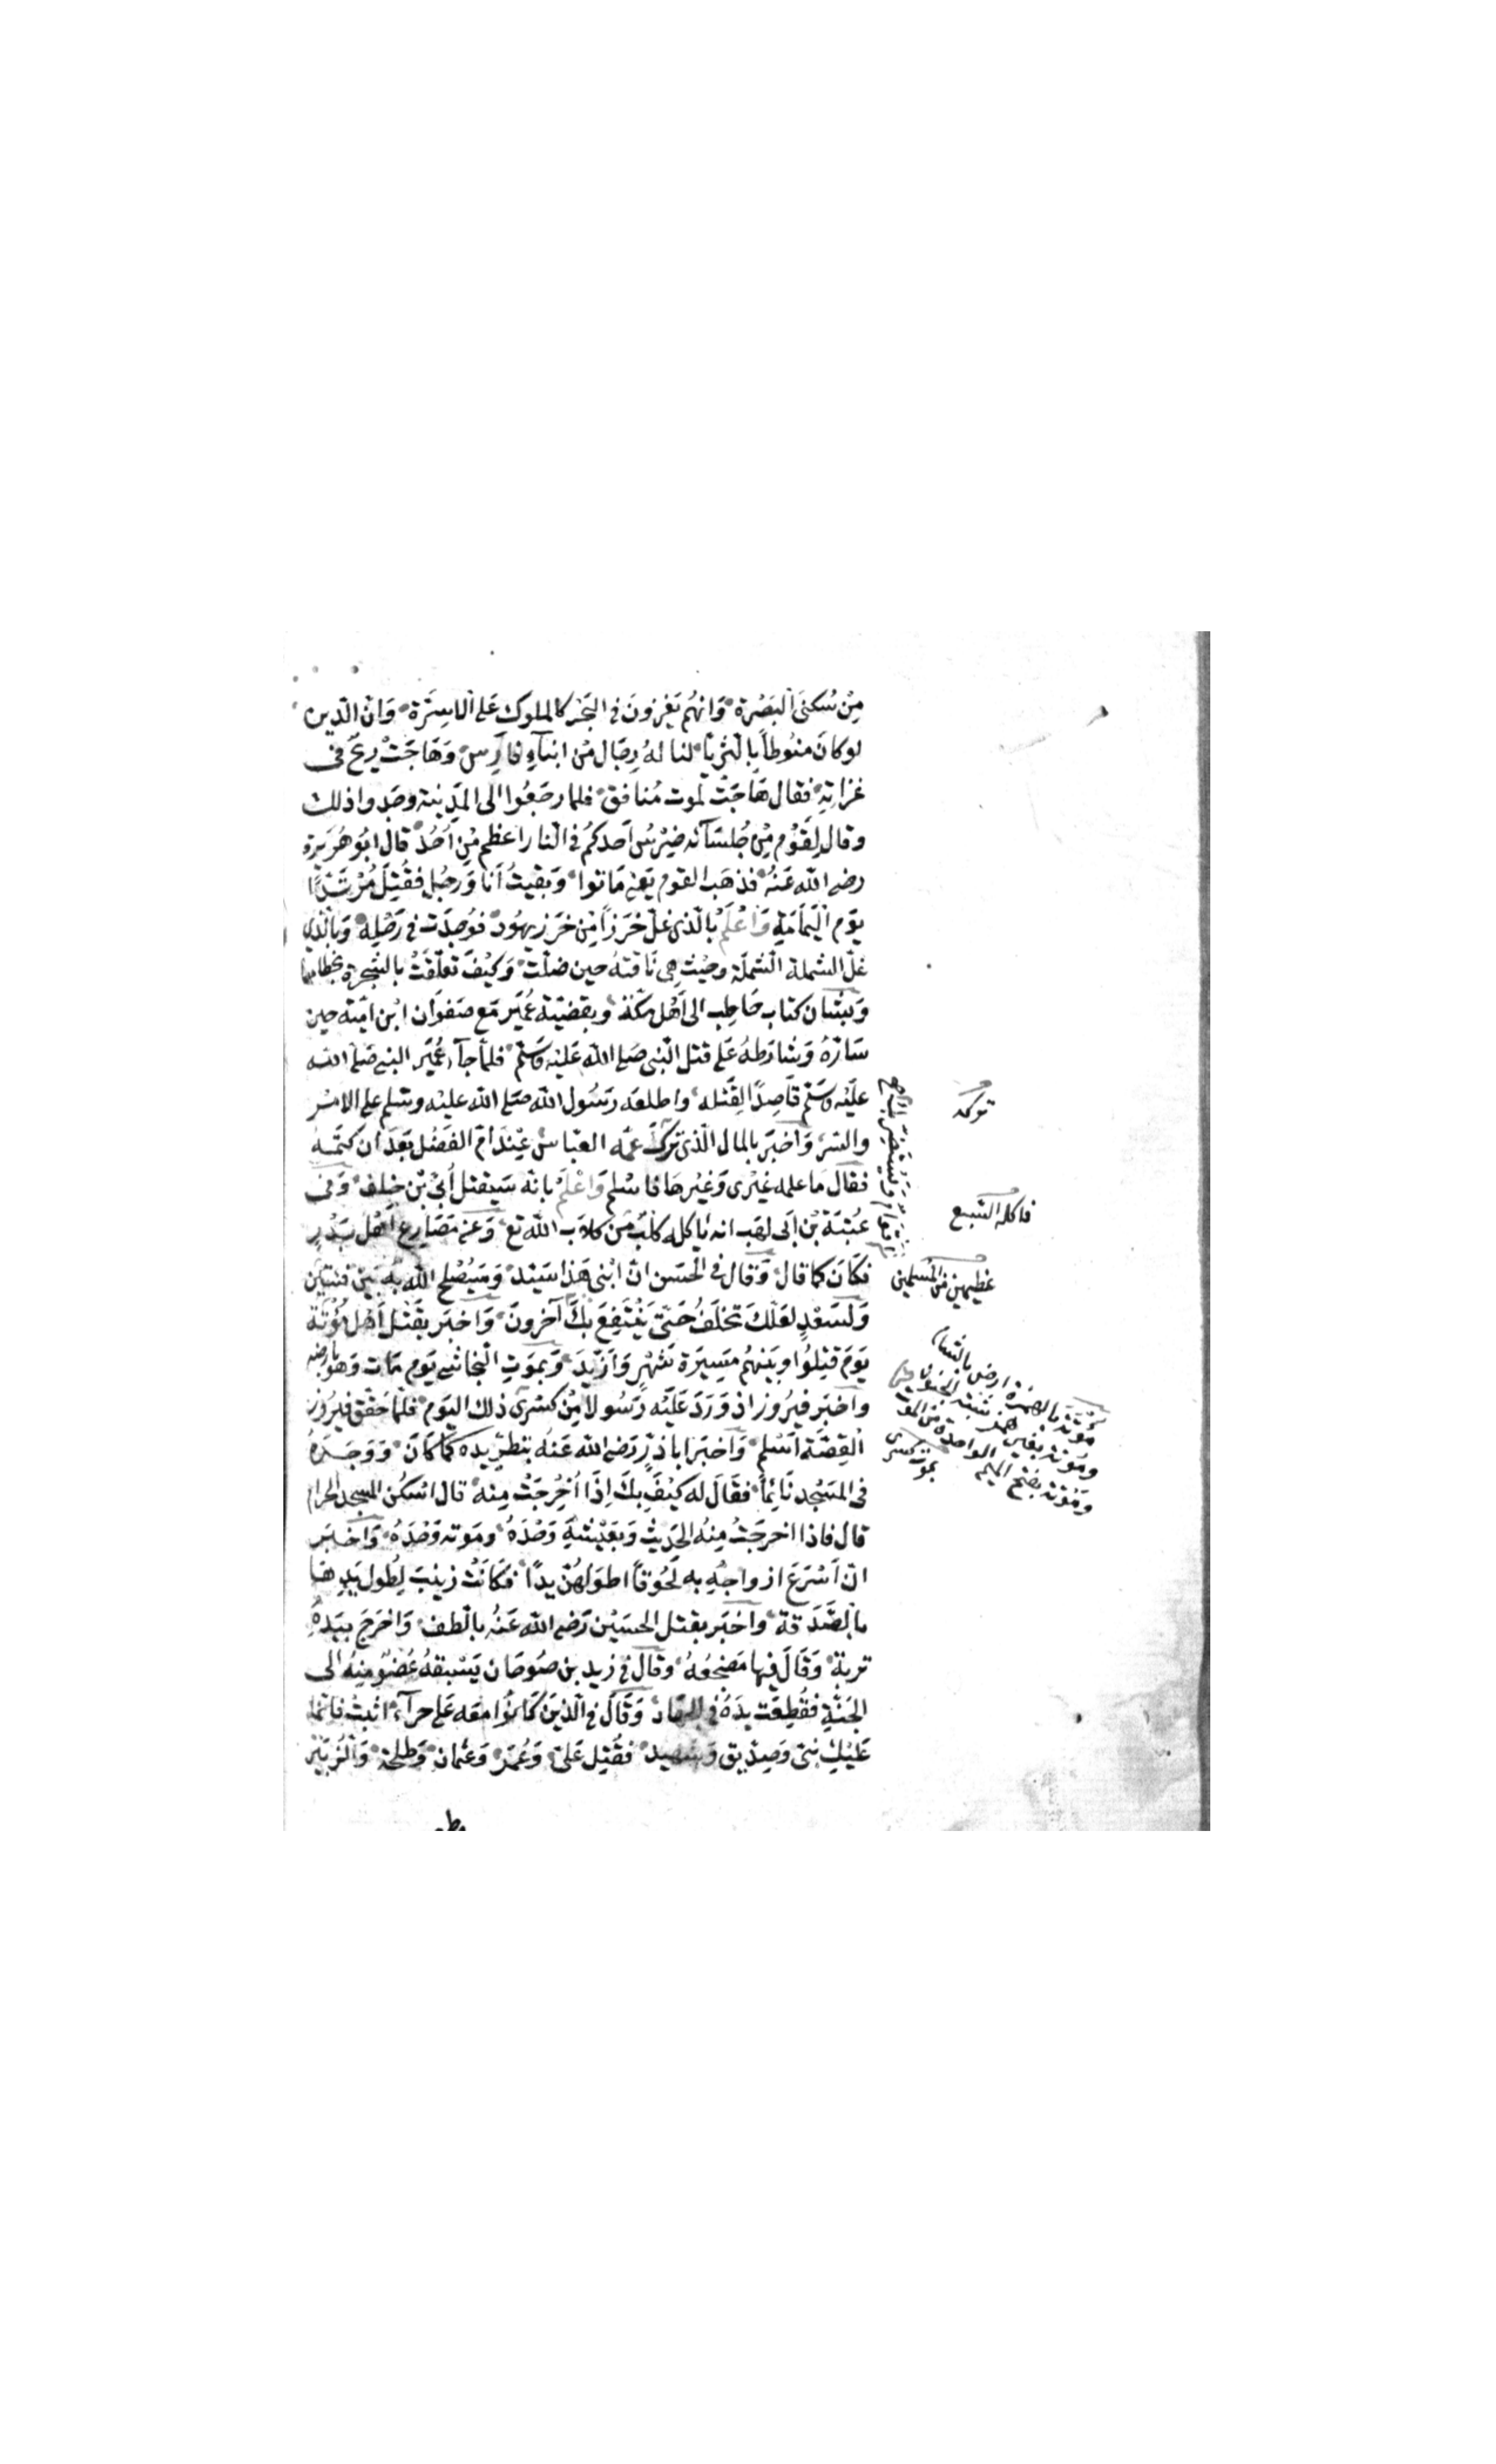 مِنْ سُكنىَ الْبَصْرة وَانهُم يَغزونَ في البَحْر كالملوك عَلى الاسِرَّة وَانّ الدّين
لو كانَ منُوطاً بِالثريّا لنا لهُ رِجَال من ابنآءِ فارِس وَهَاجَتْ ريحٌ فى
غزاتِهِ فقال هَاجَتْ لموت مُنافق فلما رجَعُوا الى المَدِينة وجَدوا ذلك
وقال لِقَوْم مِنْ جُلسَآئه ضِرْسُ أحَدكمُ في النار اعظم مِن أُحُد قال ابُو هُرَيرة
رضى الله عَنهُ فذهَب القوم يَعنى مَاتوا وَبقيتُ أنا وَرجُل فقُتِلَ مُرْتدًّا
يوَم اليَمامَةِ وَأعْلَمَ بالّذى غلّ خَرَزاً مِن خَرَز يهُود فوُجِدَت في رَحْلِهِ وَبالّذى
غلّ الشملة الشملَة وحيْث هى نَاقتهُ حين ضلت وَكيْفَ تعَلّقَتْ بالشجرة بخطامها
وَبشان كتاب حَاطِب الى أَهْل مكّة وبقضيّة عُمَيَر مَع صَفوان ابْن اميّة حين
سَارّهُ وَشارَطهُ عَلى قتل النّبى صَلى الله عَليْه وَسَلم فلمّا جآء عُمَيَر النبى صَلى الله
عليْه وَسَلم قاصِدًا لِقَتله واطلعَه رَسُول الله صَلى الله عليْه وسَلم على الامْر
والسّر وَأخبَر بالمال الّذى ترَكَهُ عمّه العبّاس عِنْدَ أمّ الفَضْل بَعَدَ أن كتمَهُ
فقال مَا علمه غيْرى وَغيْرهَا فاسْلم وَأعْلَمَ بانهُ سَيقتل أُبيّ بْن خلف وَفى
عُتبَة بْن أبى لهَب انه يأكله كلبٌ من كلاب الله تع وَعن مَصَارِع اَهْل بَدْر
فكَانَ كما قال وَقال في الحَسَن انّ ابْنى هَذا سَيّد وَسَيُصْلح الله به بَين فئتين
وَلسَعْدٍ لعَلّكَ تخلَفُ حَتّىَ يَنْتَفِعَ بكَ آخرونَ وَاخبَر بقَتْل أهْل مُؤتَة
يَوَم قتِلُوُا وبَينهُم مَسِيرَة شهْرٍ وَأزْيَدَ وَبموَتِ النجاشى يَوم مَات وَهوُ بارضه
واخبَر فيرُوز اذ وَرَدَ عَليْه رَسُولا مِنْ كسْرى ذلك اليَوم فلمّا حَقّق فيرُوز
القِصَّة اسْلم وَاخبَر ابا ذرٍّ رَضى الله عَنهُ بتطرّيده كما كانَ وَوَجَدَهُ
فى المَسْجد نَائِماً فقَالَ له كيْفَ بكَ اِذَا اُخْرِجْتَ مِنه قال اسْكُن المسجد الحرام
قال فاذا اخرجَتْ مِنهُ الحَدِيث وَبعَيْشهِ وَحْدَهُ ومَوته وَحْدَهُ وَاخبَر
انّ أسْرَعَ ازواجِهِ به لحُوقاً اطوَلهُنّ يدًا فكانَتْ زينبَ لِطُول يَدِهَا
بالصّدَقة واخبَر بقتل الحسَيْن رَضى الله عَنهُ بالطف وَاخرَجَ بيَدِهِ
تربة وَقالَ فيها مَضْجَعُهُ وقال في زيد بن صُوحَان يَسْبقهُ عُضوٌ مِنهُ الى
الجَنّةِ فقُطِعَت يدَهُ في الجهَاد وَقالَ في الّذينَ كَانُوا معَه عَلى حرآءَ اثبت فانّما
عَليْكَ نبيّ وَصِدّيق وَشهيد فقُتِل عَلىّ وَعُمَر وَعثمان وَطلحة وَالزبيْر
تركه
فاكله السّبع
عَظيمين مِن المُسْلمين
مؤتة بالهمزة ارض بالشام
ومُوتة بغير همز شبه الجنون
ومَوْتة بفتح الميم الواحدة من الموت
بموت كسرى